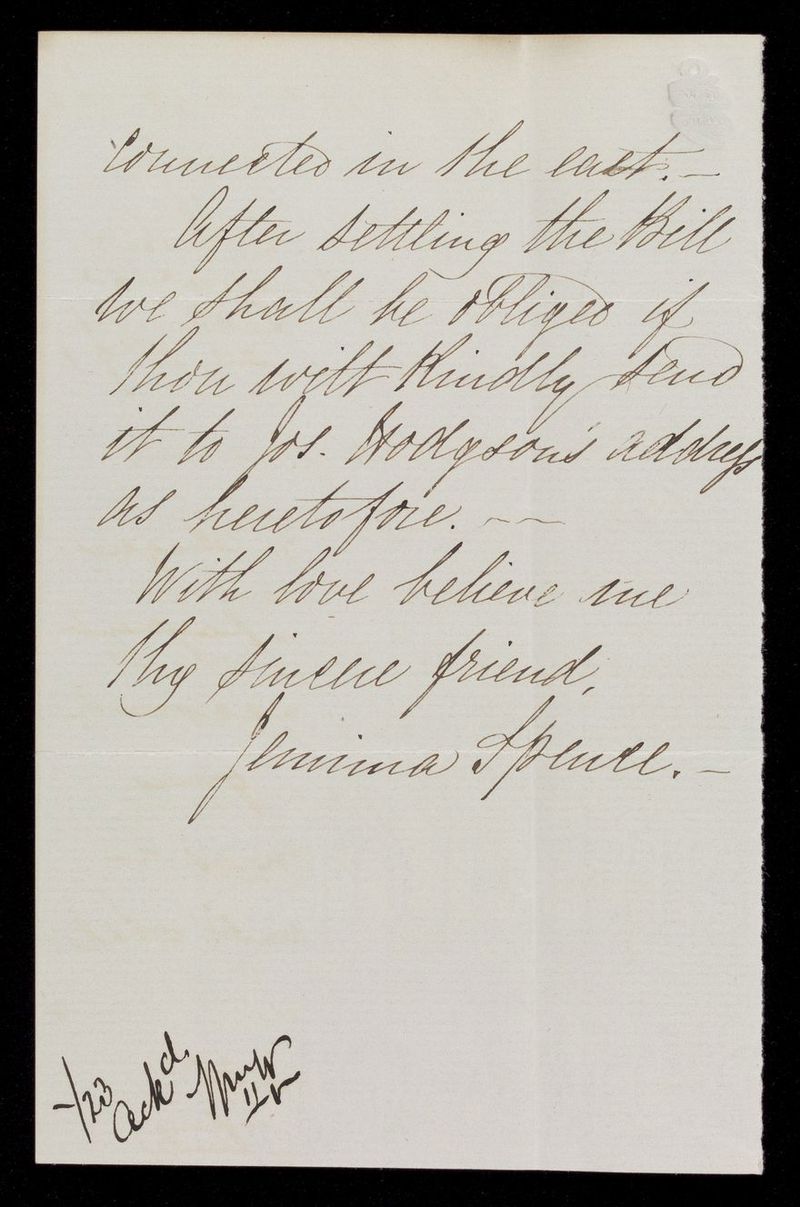 connected in the east. –
After settling the Bill
we shall be obliged if
thou wilt kindly send
it to Jos. Hodgson's address
as heretofore. ——
With love believe me
thy sincere friend,
Jemima Spence. –
–/23
Ackd.